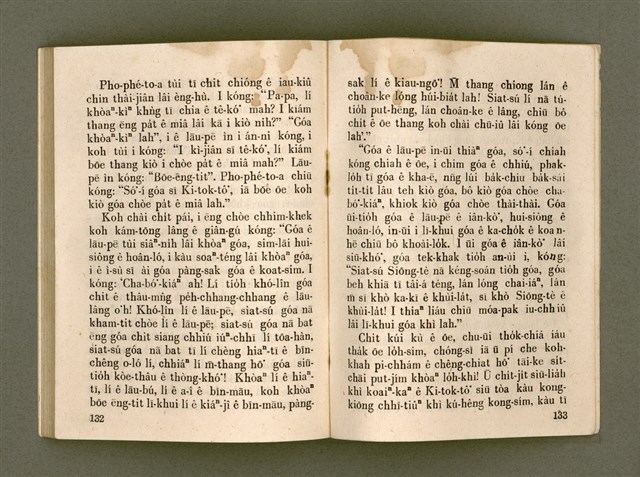 Pho-phé-to-a tùi tī chit chióng ê iau-kiû
chin thài-jiân lâi èng-hù. I kóng: “Pa-pa, lí
khòaⁿ-kìⁿ khǹg tī chia ê tê-kó͘ mah? I kiám
thang ēng pa̍t ê miâ lâi kā i kiò nih?” “Góa
khòaⁿ-kìⁿ lah”, i ê lāu-pē in i án-ni kóng, i
koh tùi i kóng: “I kì-jiân sī tê-kó͘, lí kiám
bōe thang kiò i chòe pa̍t ê miâ mah?” Lāu-
pē ìn kóng: “Bōe-ēng-tit”. Pho-phé-to-a chiū
kóng: “Só͘-í góa sī Ki-tok-tô͘, iā bōe ōe koh
kiò góa chòe pa̍t ê miâ lah.”
Koh chài chit pái, i ēng chòe chhim-khek
koh kám-tōng lâng ê giân-gú kóng: “Góa ê
lāu-pē tùi siâⁿ-nih lâi khòaⁿ góa, sim-lāi hui-
siông ê hoân-ló, i kàu soaⁿ-téng lâi khòaⁿ góa,
i ê ì-sù sī ài góa pàng-sak góa ê koat-sim. I
kóng: ‘Cha-bó͘-kiáⁿ ah! Lí tio̍h khó-lîn góa
chit ê thâu-mn̂g pe̍h-chhang-chhang ê lāu-
lâng o͘h! Khó-lîn lí ê lāu-pē, siat-sú góa nā
kham-tit chòe lí ê lāu-pē; siat-sú góa nā bat
ēng góa chit siang chhiú iúⁿ-chhī lí tōa-hàn,
siat-sú góa nā bat tī lí chèng hiaⁿ-tī ê bīn-
chêng o-ló lí, chhiáⁿ lí m̄-thang hō͘ góa siū-
tio̍h kòe-thâu ê thòng-khó͘! Khòaⁿ lí ê hiaⁿ-
tī, lí ê lāu-bú, lí ê a-î ê bīn-māu, koh khòaⁿ
bōe ēng-tit lī-khui lí ê kiáⁿ-jî ê bīn-māu, pàng-
132
sak lí ê kiau-ngō͘! M̄ thang chiong lán ê
choân-ke lóng húi-bia̍t lah! Siat-sú lí nā tú-
tio̍h put-hēng, lán choân-ke ê lâng, chiū bô
chit ê ōe thang koh chài chū-iû lâi kóng ōe
lah’.”
“Góa ê lāu-pē in-ūi thiàⁿ góa, só͘-í chiah
kóng chiah ê ōe, i chim góa ê chhiú, phak-
lo̍h tī góa ê kha-ē, nn̄g lúi ba̍k-chiu ba̍k-sái
tit-tit lâu teh kiò góa, bô kiò góa chòe cha-
bó͘-kiáⁿ, khiok kiò góa chòe thài-thài. Góa
ūi-tio̍h góa ê lāu-pē ê iân-kò͘, hui-siông ê
hoân-ló, in-ūi i lī-khui góa ê ka-cho̍k ê koan-
hē chiū bô khoài-lo̍k. I ūi góa ê iân-kò͘ lâi
siū-khó͘, góa tek-khak tio̍h an-úi i, kóng:
“Siat-sú Siōng-tè nā kéng-soán tio̍h góa, góa
beh khiā tī tâi-á téng, lán lóng chai-iáⁿ, lán
m̄ sī khò ka-kī ê khùi-la̍t, sī khò Siōng-tè ê
khùi-la̍t! I thiaⁿ liáu chiū móa-pak iu-chhiû
lâi lī-khui góa khì lah.”
Chit kúi kù ê ōe, chu-ūi tho̍k-chiá iáu
tha̍k ōe lo̍h-sim, chóng-sī iā ū pi che koh-
khah pi-chhám ê chêng-chiat hō͘ tāi-ke sit-
chāi put-jím khòaⁿ lo̍h-khì! Ū chit-jit siū-lia̍h
khì koaiⁿ-kaⁿ ê Ki-tok-tô͘ siū tòa kàu kong-
kiōng chhī-tiûⁿ khì kú-hêng kong-sím, kàu tī
133